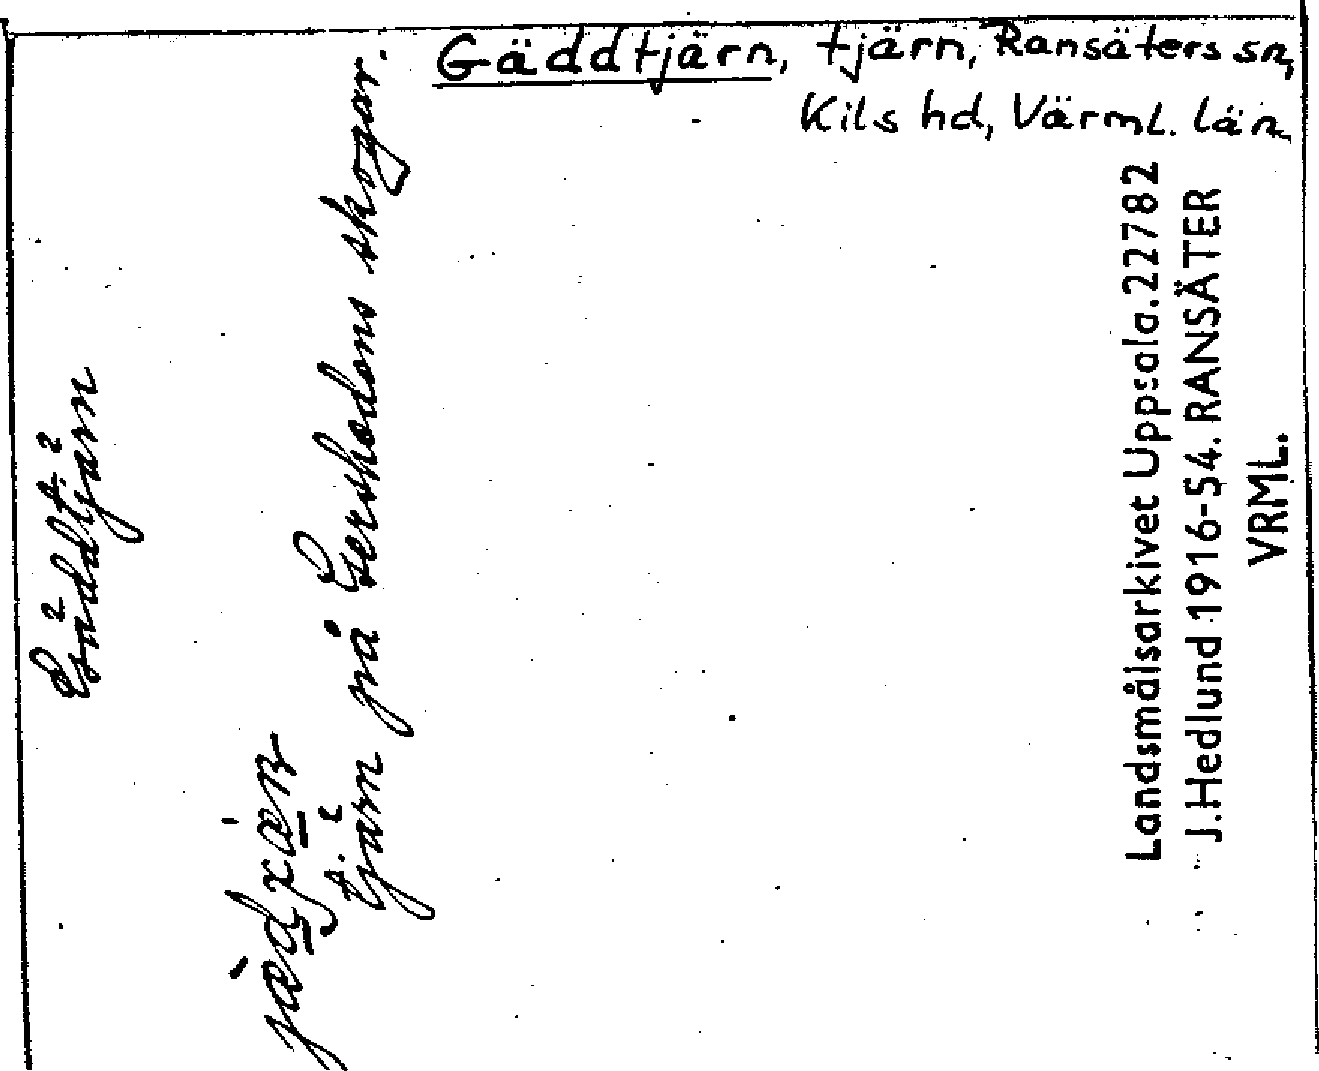 Gäddtjärn, tjärn, Ransäters sn,
Kils hd, Värml. län
Gäddtjärn
tjärn på Gershedens skogar.
Landsmålsarkivet Uppsala. 22782
J. Hedlund 1916-54. RANSÄTER
VRML.